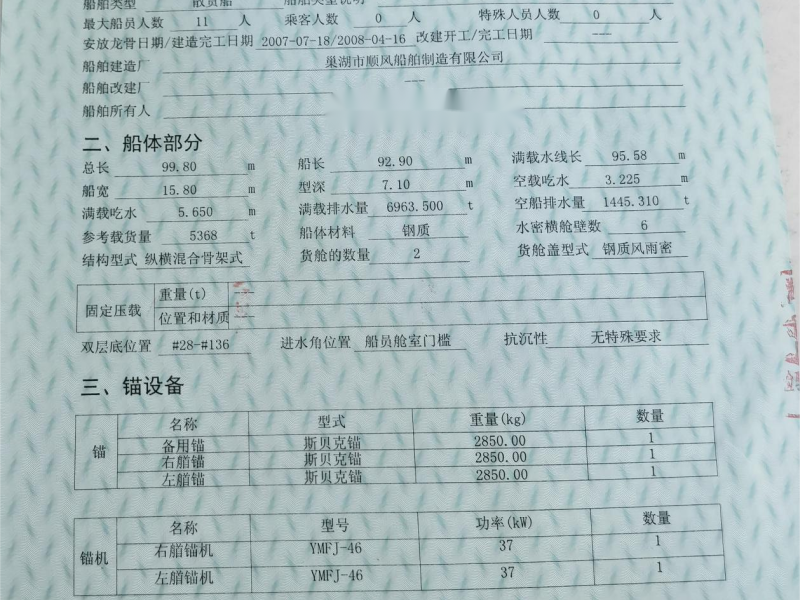 船舶类型 散货船 船舶类型说明
最大船员人数 11 人 乘客人数 0 人 特殊人员人数 0 人
安放龙骨日期/建造完工日期 2007-07-18/2008-04-16 改建开工/完工日期 ---
船舶建造厂 巢湖市顺风船舶制造有限公司
船舶改建厂 ---
船舶所有人
二、船体部分
总长 99.80 m 船长 92.90 m 满载水线长 95.58 m
船宽 15.80 m 型深 7.10 m 空载吃水 3.225 m
满载吃水 5.650 m 满载排水量 6963.500 t 空船排水量 1445.310 t
参考载货量 5368 t 船体材料 钢质 水密横舱壁数 6
结构型式 纵横混合骨架式 货舱的数量 2 货舱盖型式 钢质风雨密
固定压载 重量(t) ---
位置和材质 ---
双层底位置 #28-#136 进水角位置 船员舱室门槛 抗沉性 无特殊要求
三、锚设备
锚 名称 型式 重量(kg) 数量
备用锚 斯贝克锚 2850.00 1
右艏锚 斯贝克锚 2850.00 1
左艏锚 斯贝克锚 2850.00 1
锚机 名称 型号 功率(kW) 数量
右艏锚机 YMFJ-46 37 1
左艏锚机 YMFJ-46 37 1